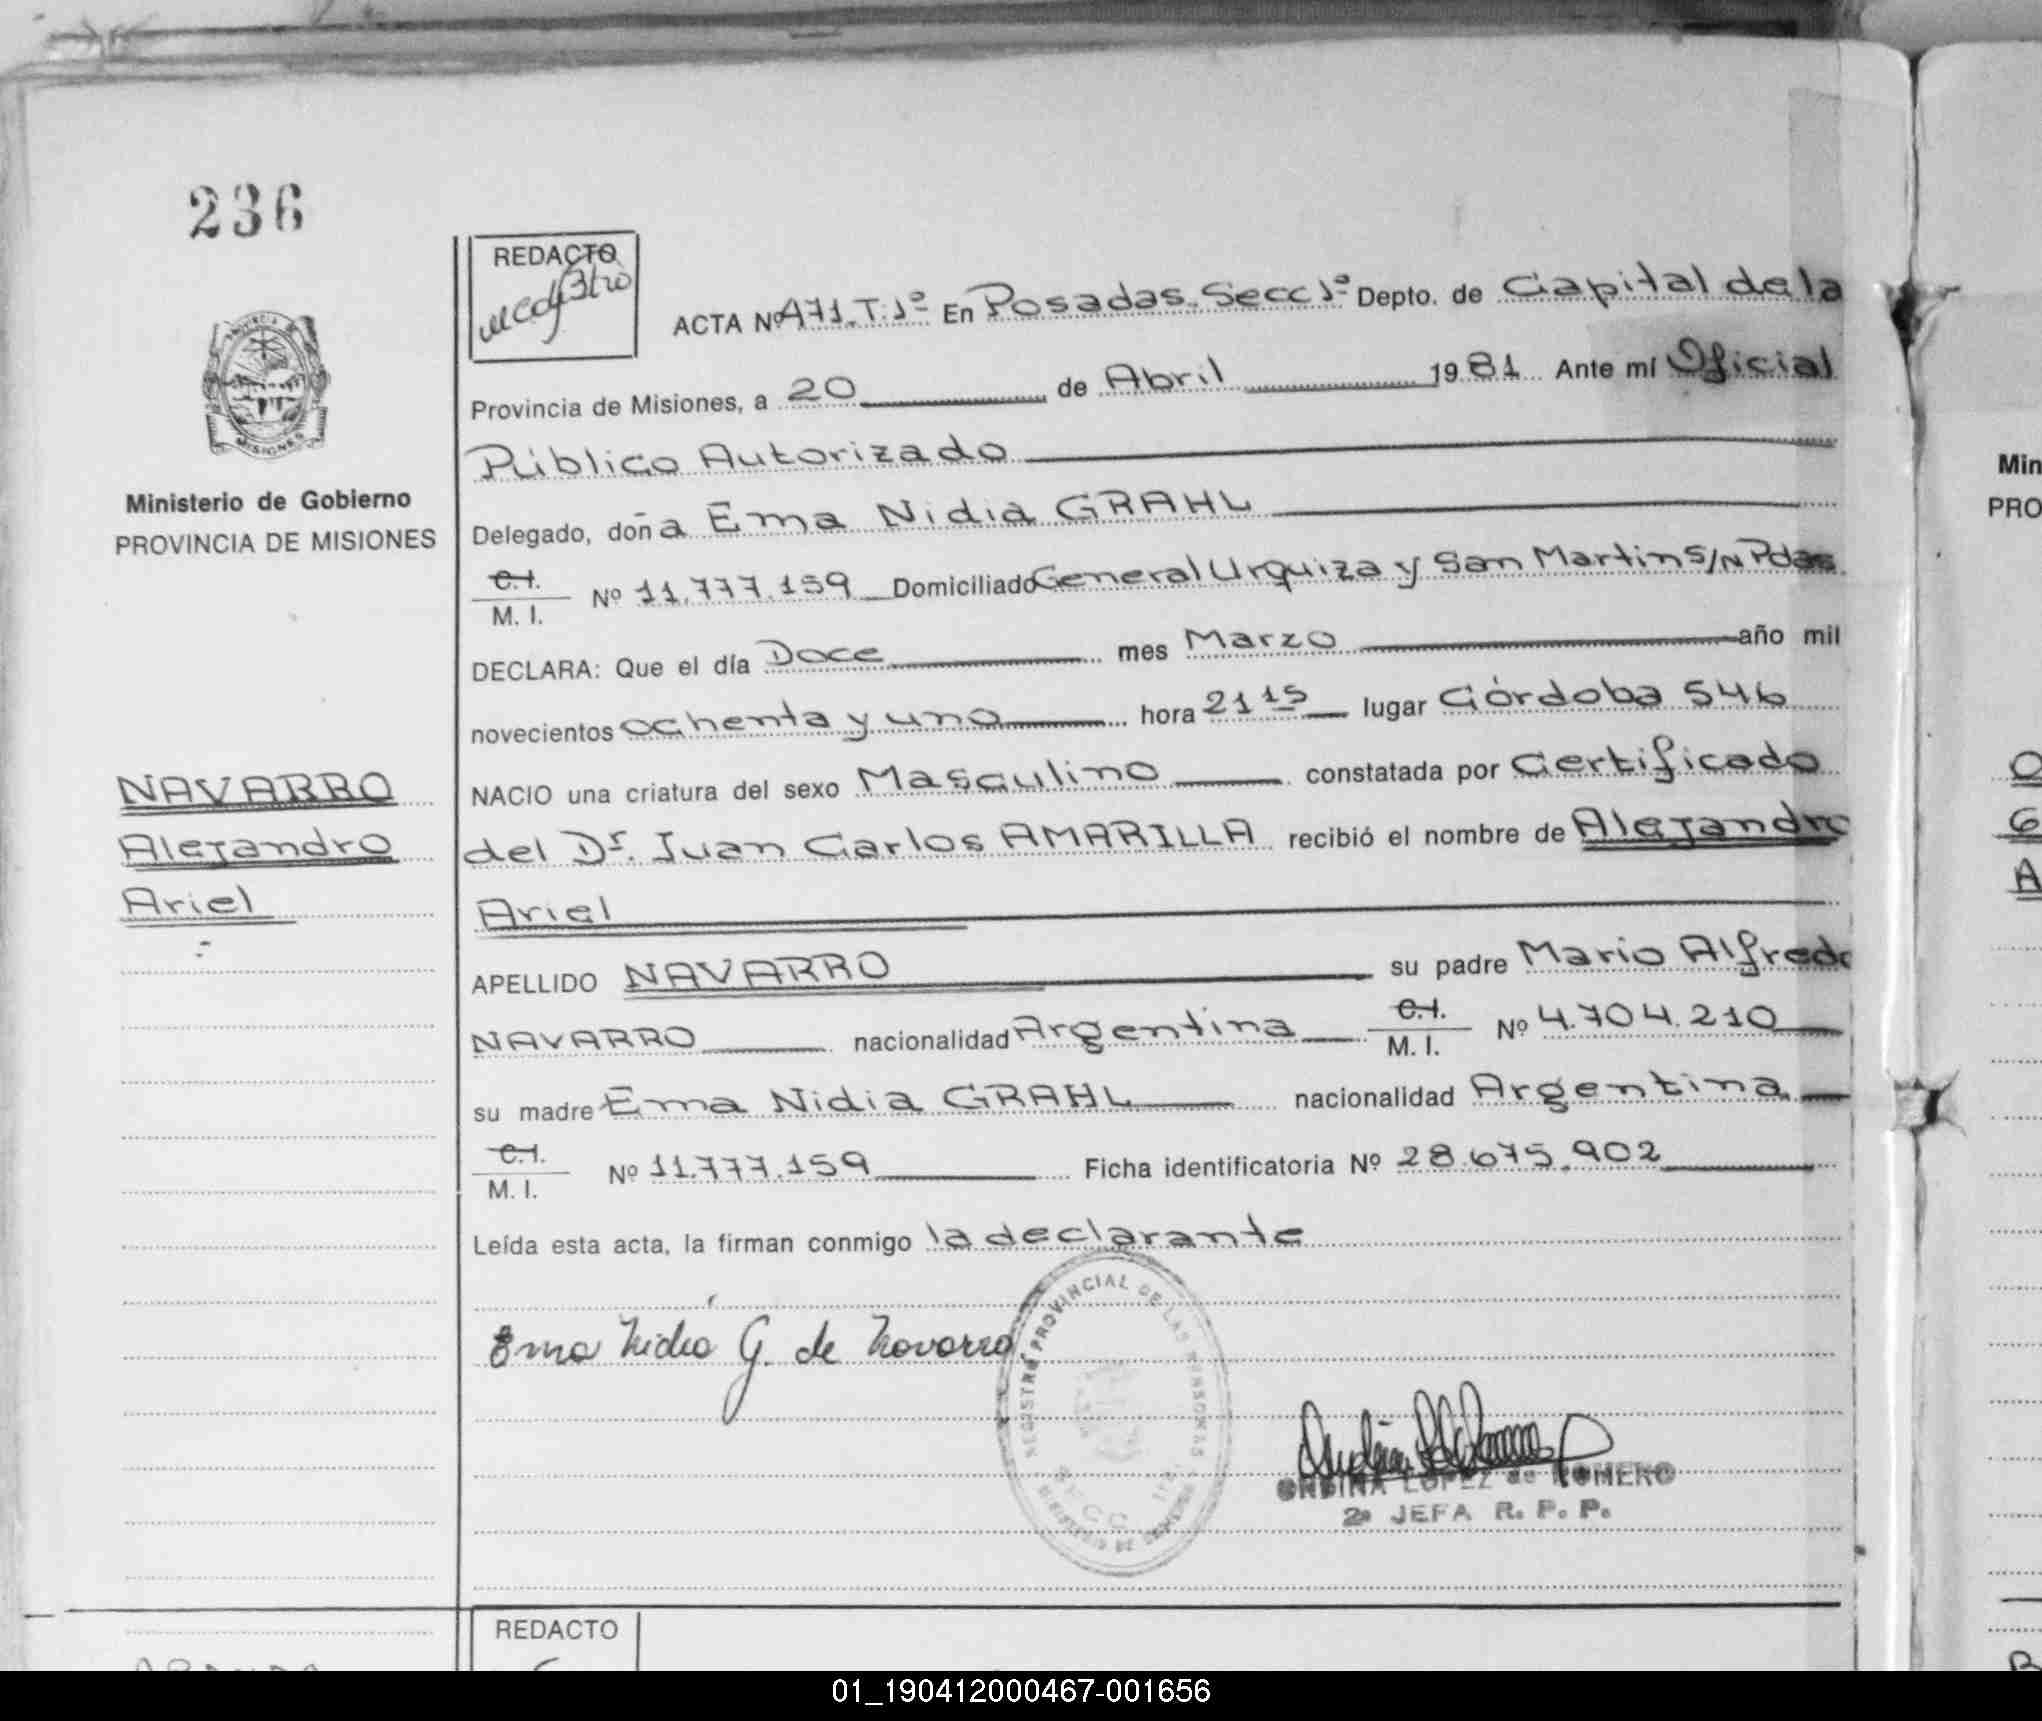 236
REDACTO
ACTA Nº 471.T:1º En Posadas.Secc 1º Depto. de Capital de la
Provincia de Misiones, a 20 de Abril 1981 Ante mí Oficial
Público Autorizado
Delegado, doña Ema Nidia GRAHL
C.I. M. I. Nº 11.777.159 Domiciliado General Urquiza y San Martin S/N Pdas
DECLARA: Que el día Doce mes Marzo año mil
novecientos ochenta y uno hora 21 15 lugar Córdoba 546
NACIO una criatura del sexo Masculino constatada por Certificado
del Dr. Juan Carlos AMARILLA recibió el nombre de Alejandro
Ariel
APELLIDO NAVARRO su padre Mario Alfredo
NAVARRO nacionalidad Argentina C.I. M. I. Nº 4.704.210
su madre Ema Nidia GRAHL nacionalidad Argentina
C.I. M. I. Nº 11.777.159 Ficha identificatoria Nº 28.675.902
Leída esta acta, la firman conmigo la declarante
Ema Nidia G. de Navarro
REGISTRO PROVINCIAL DE LAS PERSONAS
ONDINA LOPEZ de ROMERO
2a JEFA R. P. P.
PROVINCIA
MISIONES
Ministerio de Gobierno
PROVINCIA DE MISIONES
NAVARRO
Alejandro
Ariel
REDACTO
Min
PRO
01_190412000467-001656